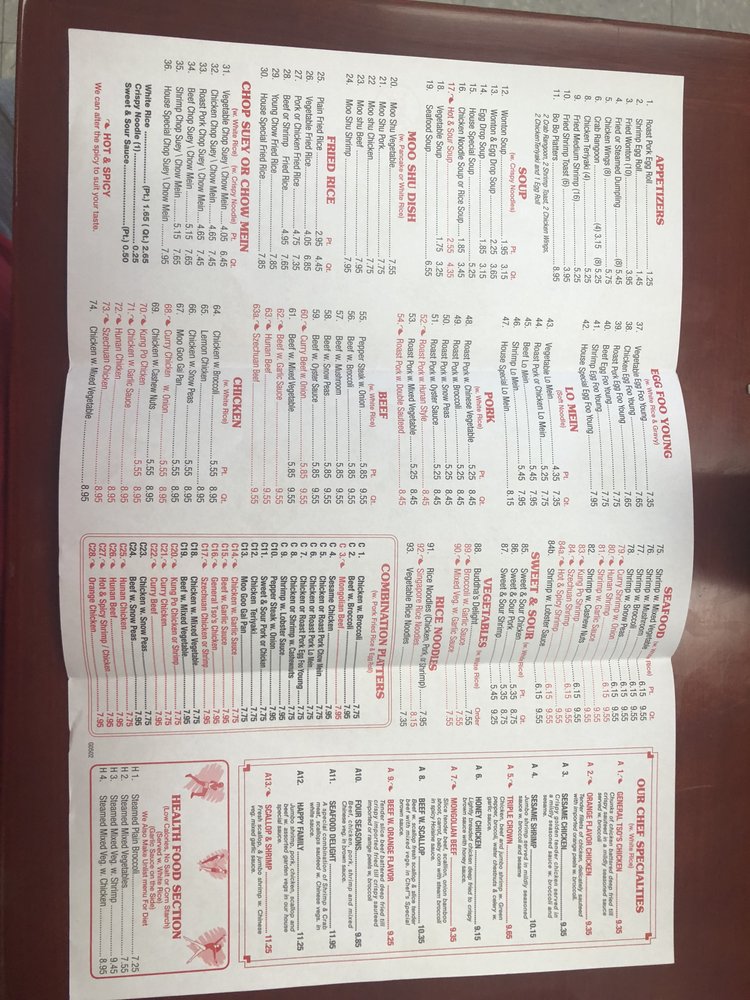 APPETIZERS
1. Roast Pork Egg Roll 1.25
2. Shrimp Egg Roll 1.45
3. Fried Wonton (10) 3.95
4. Fried or Steamed Dumpling (8) 5.45
5. Chicken Wings (8) 5.75
6. Crab Rangoon (4) 3.15 (8) 5.25
8. Chicken Teriyaki (4) 5.25
9. Fried Medium Shrimp (16) 5.25
10. Fried Shrimp Toast (6) 3.95
11. Bo Bo Platters 8.95
2 Crab Rangoon, 2 Shrimp Toast, 2 Chicken Wings,
2 Chicken Teriyaki and 1 Egg Roll
SOUP
(w. Crispy Noodles) Pt. Qt.
12. Wonton Soup 1.95 3.15
13. Wonton & Egg Drop Soup 2.25 3.65
14. Egg Drop Soup 1.85 3.15
15. House Special Soup 5.25
16. Chicken Noodle Soup or Rice Soup 1.85 3.45
17. Hot & Sour Soup 2.55 4.35
18. Vegetable Soup 1.75 3.25
19. Seafood Soup 6.55
MOO SHU DISH
(w. Pancake or White Rice)
20. Moo Shu Vegetable 7.55
21. Moo Shu Pork 7.75
22. Moo shu Chicken 7.75
23. Moo shu Beef 7.95
24. Moo Shu Shrimp 7.95
FRIED RICE
Pt. Qt.
25. Plain Fried Rice 2.95 4.45
26. Vegetable Fried Rice 4.05 6.85
27. Pork or Chicken Fried Rice 4.75 7.35
28. Beef or Shrimp Fried Rice 4.95 7.65
29. Young Chow Fried Rice 7.85
30. House Special Fried Rice 7.85
CHOP SUEY OR CHOW MEIN
(w. White Rice) (w. Crispy Noodle) Pt. Qt.
31. Vegetable Chop Suey \ Chow Mein 4.05 6.45
32. Chicken Chop Suey \ Chow Mein 4.65 7.45
33. Roast Pork Chop Suey \ Chow Mein 4.65 7.45
34. Beef Chop Suey \ Chow Mein 5.15 7.65
35. Shrimp Chop Suey \ Chow Mein 5.15 7.65
36. House Special Chop Suey \ Chow Mein 7.95
White Rice (Pt.) 1.65 (Qt.) 2.65
Crispy Noodle (1) 0.25
Sweet & Sour Sauce (Pt.) 0.50
HOT & SPICY
We can alter the spicy to suit your taste.
EGG FOO YOUNG
(w. White Rice & Gravy)
37. Vegetable Egg Foo Young 7.35
38. Chicken Egg Foo Young 7.65
39. Roast Pork Egg Foo Young 7.65
40. Beef Egg Foo Young 7.75
41. Shrimp Egg Foo Young 7.75
42. House Special Egg Foo Young 7.95
LO MEIN
(Soft Noodle) Pt. Qt.
43. Vegetable Lo Mein 4.35 7.35
44. Roast Pork or Chicken Lo Mein 5.25 7.75
45. Beef Lo Mein 5.45 7.95
46. Shrimp Lo Mein 5.45 7.95
47. House Special Lo Mein 8.15
PORK
(w. White Rice) Pt. Qt.
48. Roast Pork w. Chinese Vegetable 5.25 8.45
49. Roast Pork w. Broccoli 5.25 8.45
50. Roast Pork w. Snow Peas 5.25 8.45
51. Roast Pork w. Oyster Sauce 5.25 8.45
52. Roast Pork w. Hunan Style 8.45
53. Roast Pork w. Mixed Vegetable 5.25 8.45
54. Roast Pork w. Double Sauteed 8.45
BEEF
(w. White Rice) Pt. Qt.
55. Pepper Steak w. Onion 5.85 9.55
56. Beef w. Broccoli 5.85 9.55
57. Beef w. Mushroom 5.85 9.55
58. Beef w. Snow Peas 5.85 9.55
59. Beef w. Oyster Sauce 5.85 9.55
60. Curry Beef w. Onion 5.85 9.55
61. Beef w. Mixed Vegetable 5.85 9.55
62. Beef w. Garlic Sauce 9.55
63. Hunan Beef 9.55
63a. Szechuan Beef 9.55
CHICKEN
(w. White Rice) Pt. Qt.
64. Chicken w. Broccoli 5.55 8.95
65. Lemon Chicken 8.95
66. Chicken w. Snow Peas 5.55 8.95
67. Moo Goo Gai Pan 5.55 8.95
68. Curry Chicken w. Onion 5.55 8.95
69. Chicken w. Cashew Nuts 5.55 8.95
70. Kung Po Chicken 5.55 8.95
71. Chicken w. Garlic Sauce 8.95
72. Hunan Chicken 8.95
73. Szechuan Chicken 8.95
74. Chicken w. Mixed Vegetable 8.95
SEAFOOD
(w. White Rice) Pt. Qt.
75. Shrimp w. Mixed Vegetable 6.15 9.55
76. Shrimp w. Mushroom 6.15 9.55
77. Shrimp w. Broccoli 6.15 9.55
78. Shrimp w. Snow Peas 6.15 9.55
79. Curry Shrimp w. Onion 6.15 9.55
80. Hunan Shrimp 9.55
81. Shrimp w. Garlic Sauce 6.15 9.55
82. Shrimp w. Cashew Nuts 6.15 9.55
83. Kung Po Shrimp 6.15 9.55
84. Szechuan Shrimp 9.55
84a. Hot & Spicy Shrimp 6.15 9.55
84b. Shrimp w. Lobster Sauce 6.15 9.55
SWEET & SOUR
(w. White Rice) Pt. Qt.
85. Sweet & Sour Chicken 5.35 8.75
86. Sweet & Sour Pork 5.35 8.75
87. Sweet & Sour Shrimp 5.45 9.25
VEGETABLES
(w. White Rice) Order
88. Buddha's Delight 7.55
89. Broccoli w. Garlic Sauce 7.55
90. Mixed Veg. w. Garlic Sauce 7.55
RICE NOODLES
91. Rice Noodles (Chicken, Pork or Shrimp) 7.95
92. Singapore Rice Noodles 8.15
93. Vegetable Rice Noodles 7.35
COMBINATION PLATTERS
(w. Pork Fried Rice & Egg Roll)
C 1. Chicken w. Broccoli 7.75
C 2. Beef w. Broccoli 7.95
C 3. Mongolian Beef 7.95
C 4. Sesame Chicken 7.95
C 5. Chicken or Roast Pork Chow Mein 7.75
C 6. Chicken or Roast Pork Lo Mein 7.75
C 7. Chicken or Roast Pork Egg Foo Young 7.75
C 8. Chicken or Shrimp w. Cashewnuts 7.75
C 9. Shrimp w. Lobster Sauce 7.95
C10. Pepper Steak w. Onion 7.75
C11. Sweet & Sour Pork or Chicken 7.75
C12. Chicken Teriyaki 7.75
C13. Moo Goo Gai Pan 7.75
C14. Chicken w. Garlic Sauce 7.75
C15. Beef w. Garlic Sauce 7.95
C16. General Tso's Chicken 7.95
C17. Szechuan Chicken or Shrimp 7.95
C18. Chicken w. Mixed Vegetable 7.75
C19. Beef w. Mixed Vegetable 7.95
C20. Kung Po Chicken or Shrimp 7.95
C21. Curry Chicken 7.75
C22. Curry Beef 7.95
C23. Chicken w. Snow Peas 7.75
C24. Beef w. Snow Peas 7.95
C25. Hunan Chicken 7.75
C26. Hunan Beef 7.95
C27. Hot & Spicy Shrimp / Chicken 7.95
C28. Orange Chicken 7.95
02/502
OUR CHEF SPECIALTIES
(w. White Rice)
A 1. GENERAL TSO'S CHICKEN 9.35
Chunks of chicken battered deep fried till
crispy sauteed in mildly seasoned sauce
served w. broccoli
A 2. ORANGE FLAVOR CHICKEN 9.35
Tender fillets of chicken, deliciously sauteed
with imported orange peels w. broccoli.
A 3. SESAME CHICKEN 9.35
Crispy golden tender chicken served in
a mildly seasoned sauce w. broccoli and
sesame
A 4. SESAME SHRIMP 10.15
Jumbo shrimp served in mildly seasoned
sauce w. broccoli and sesame seed
A 5. TRIPLE CROWN 9.65
Chicken, beef and jumbo shrimp w. Green
pepper, broccoli, water chestnuts & celery w.
garlic sauce.
A 6. HONEY CHICKEN 9.15
Lightly breaded chicken deep fried to crispy
brown sauce with honey sauce.
A 7. MONGOLIAN BEEF 9.35
Slice tender beef, scallion, onion bamboo
shoot, carrot, baby corn with steam broccoli
in spicy Hunan sauce.
A 8. BEEF W. SCALLOP 10.35
Beef w. scallop fresh scallop & slice tender
beef w. assorted vegs in Chef's Special
brown sauce.
A 9. BEEF W. ORANGE FLAVOR 9.25
Tender slice beef battered deep fried till
crispy imported fried till crispy sauteed
imported orange peels w. broccoli
A10. FOUR SEASONS 9.85
Beef, chicken, pork, shrimp and mixed
Chinese veg. in brown sauce.
A11. SEAFOOD DELIGHT 11.95
A special combination of Shrimp & Crab
meat, scallops sauteed w. Chinese vegs. in
white sauce.
A12. HAPPY FAMILY 11.25
Jumbo shrimp, pork, chicken, scallop and
beef w. assorted garden vegs in our house
special sauce
A13. SCALLOP & SHRIMP 11.25
Fresh scallop & jumbo. shrimp w. Chinese
veg. mixed garlic sauce.
HEALTH FOOD SECTION
(Low Calories, No Salt or Corn Starch)
(Served w. White Rice)
(Garlic Sauce on the Side)
We Also Prepare Unlist menu For Diet
H 1. Steamed Plain Broccoli 7.25
H 2. Steamed Mixed Vegetables 7.55
H 3. Steamed Mixed Veg. w. Shrimp 9.45
H 4. Steamed Mixed Veg. w. Chicken 8.95